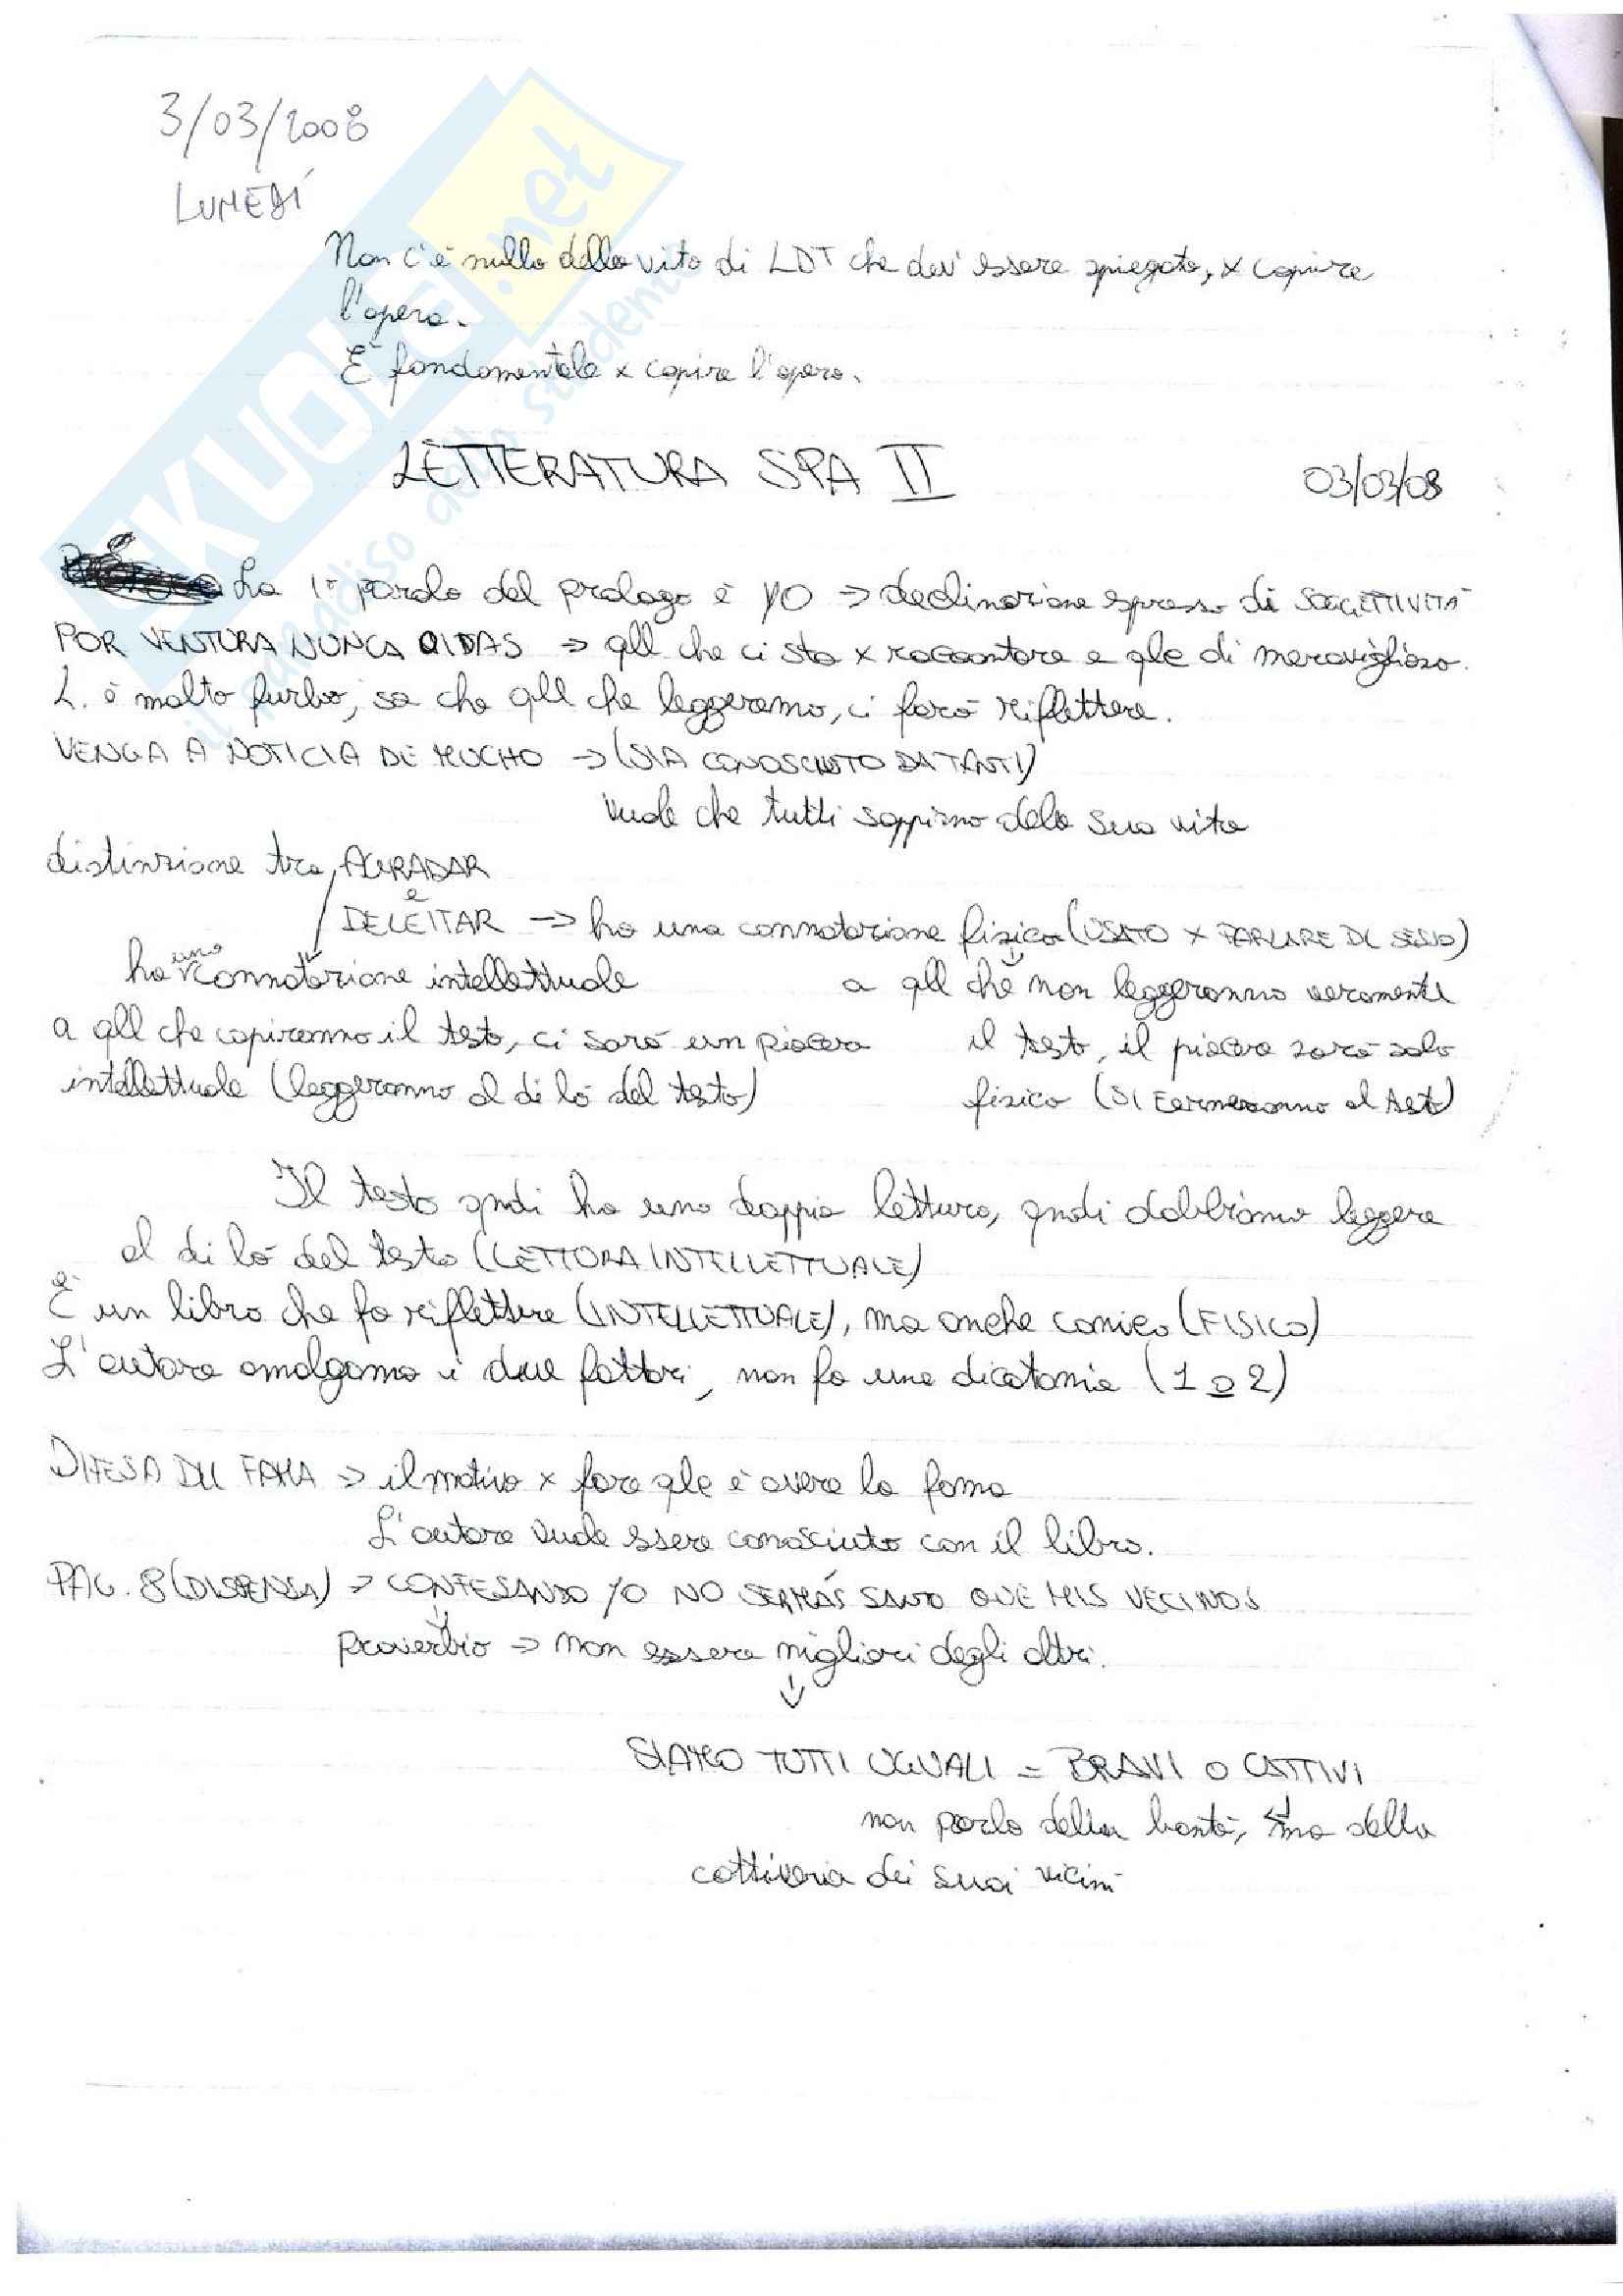 3/03/2008
LUNEDÍ
Non c'è nulla della vita di LDT che dev'essere spiegata, x capire
l'opera.
È fondamentale x capire l'opera.
LETTERATURA SPA II 03/03/08
La 1ª parola del prologo è YO → declinazione spesso di SOGGETTIVITÀ
POR VENTURA NUNCA OIDAS → qll che ci sta x raccontare e qlc di meraviglioso.
L. è molto furbo, sa che qll che leggeremo, ci farà riflettere.
VENGA A NOTICIA DE MUCHO → (SIA CONOSCIUTO DA TANTI)
vuole che tutti sappiano della sua vita
distinzione tra AGRADAR
e
DELEITAR → ha una connotazione fisica (USATO X PARLARE DI SESSO)
ha una connotazione intellettuale a qll che non leggeranno veramente
a qll che capiranno il testo, ci sarà un piacere il testo, il piacere sarà solo
intellettuale (leggeranno al di là del testo) fisico (SI fermeranno al testo)
Il testo qndi ha una doppia lettura, qndi dobbiamo leggere
al di là del testo (LETTURA INTELLETTUALE)
È un libro che fa riflettere (INTELLETTUALE), ma anche comico (FISICO)
L'autore amalgama i due fattori, non fa una dicotomia (1 o 2)
DIFESA DEL FAMA → il motivo x fare qlc è avere la fama
L'autore vuole essere conosciuto con il libro.
PAG. 8 (DISPENSA) → CONFESANDO YO NO SER MÁS SANTO QUE MIS VECINOS
↓
proverbio → non essere migliori degli altri.
↓
SIAMO TUTTI UGUALI = BRAVI O CATTIVI
↓
non parla della bontà, ma della
cattiveria dei suoi vicini
SKUOLA.net
il paradiso dello studente